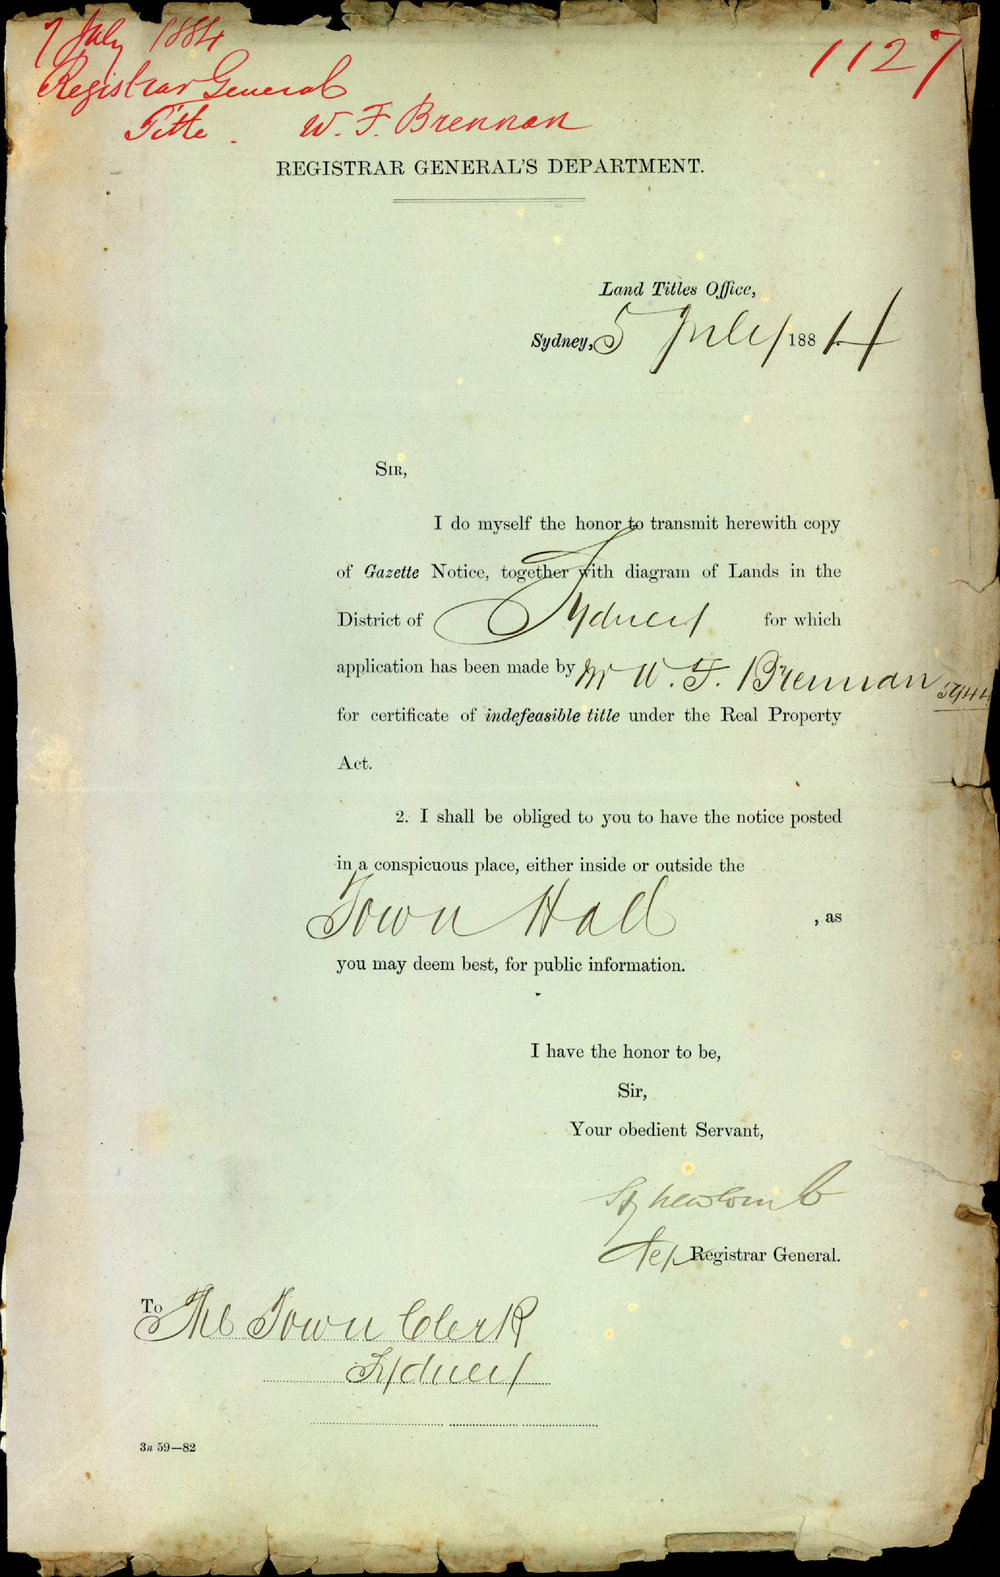 7 July 1884
1127
Registrar General
Title. W. F. Brennan
REGISTRAR GENERAL'S DEPARTMENT.
Land Titles Office,
Sydney, 5 July 1884
SIR,
I do myself the honor to transmit herewith copy
of Gazette Notice, together with diagram of Lands in the
District of Sydney for which
application has been made by Mr W. F. Brennan 5944
for certificate of indefeasible title under the Real Property
Act.
2. I shall be obliged to you to have the notice posted
in a conspicuous place, either inside or outside the
Town Hall , as
you may deem best, for public information.
I have the honor to be,
Sir,
Your obedient Servant,
Newcomb
Dep Registrar General.
To The Town Clerk
Sydney
3n 59—82